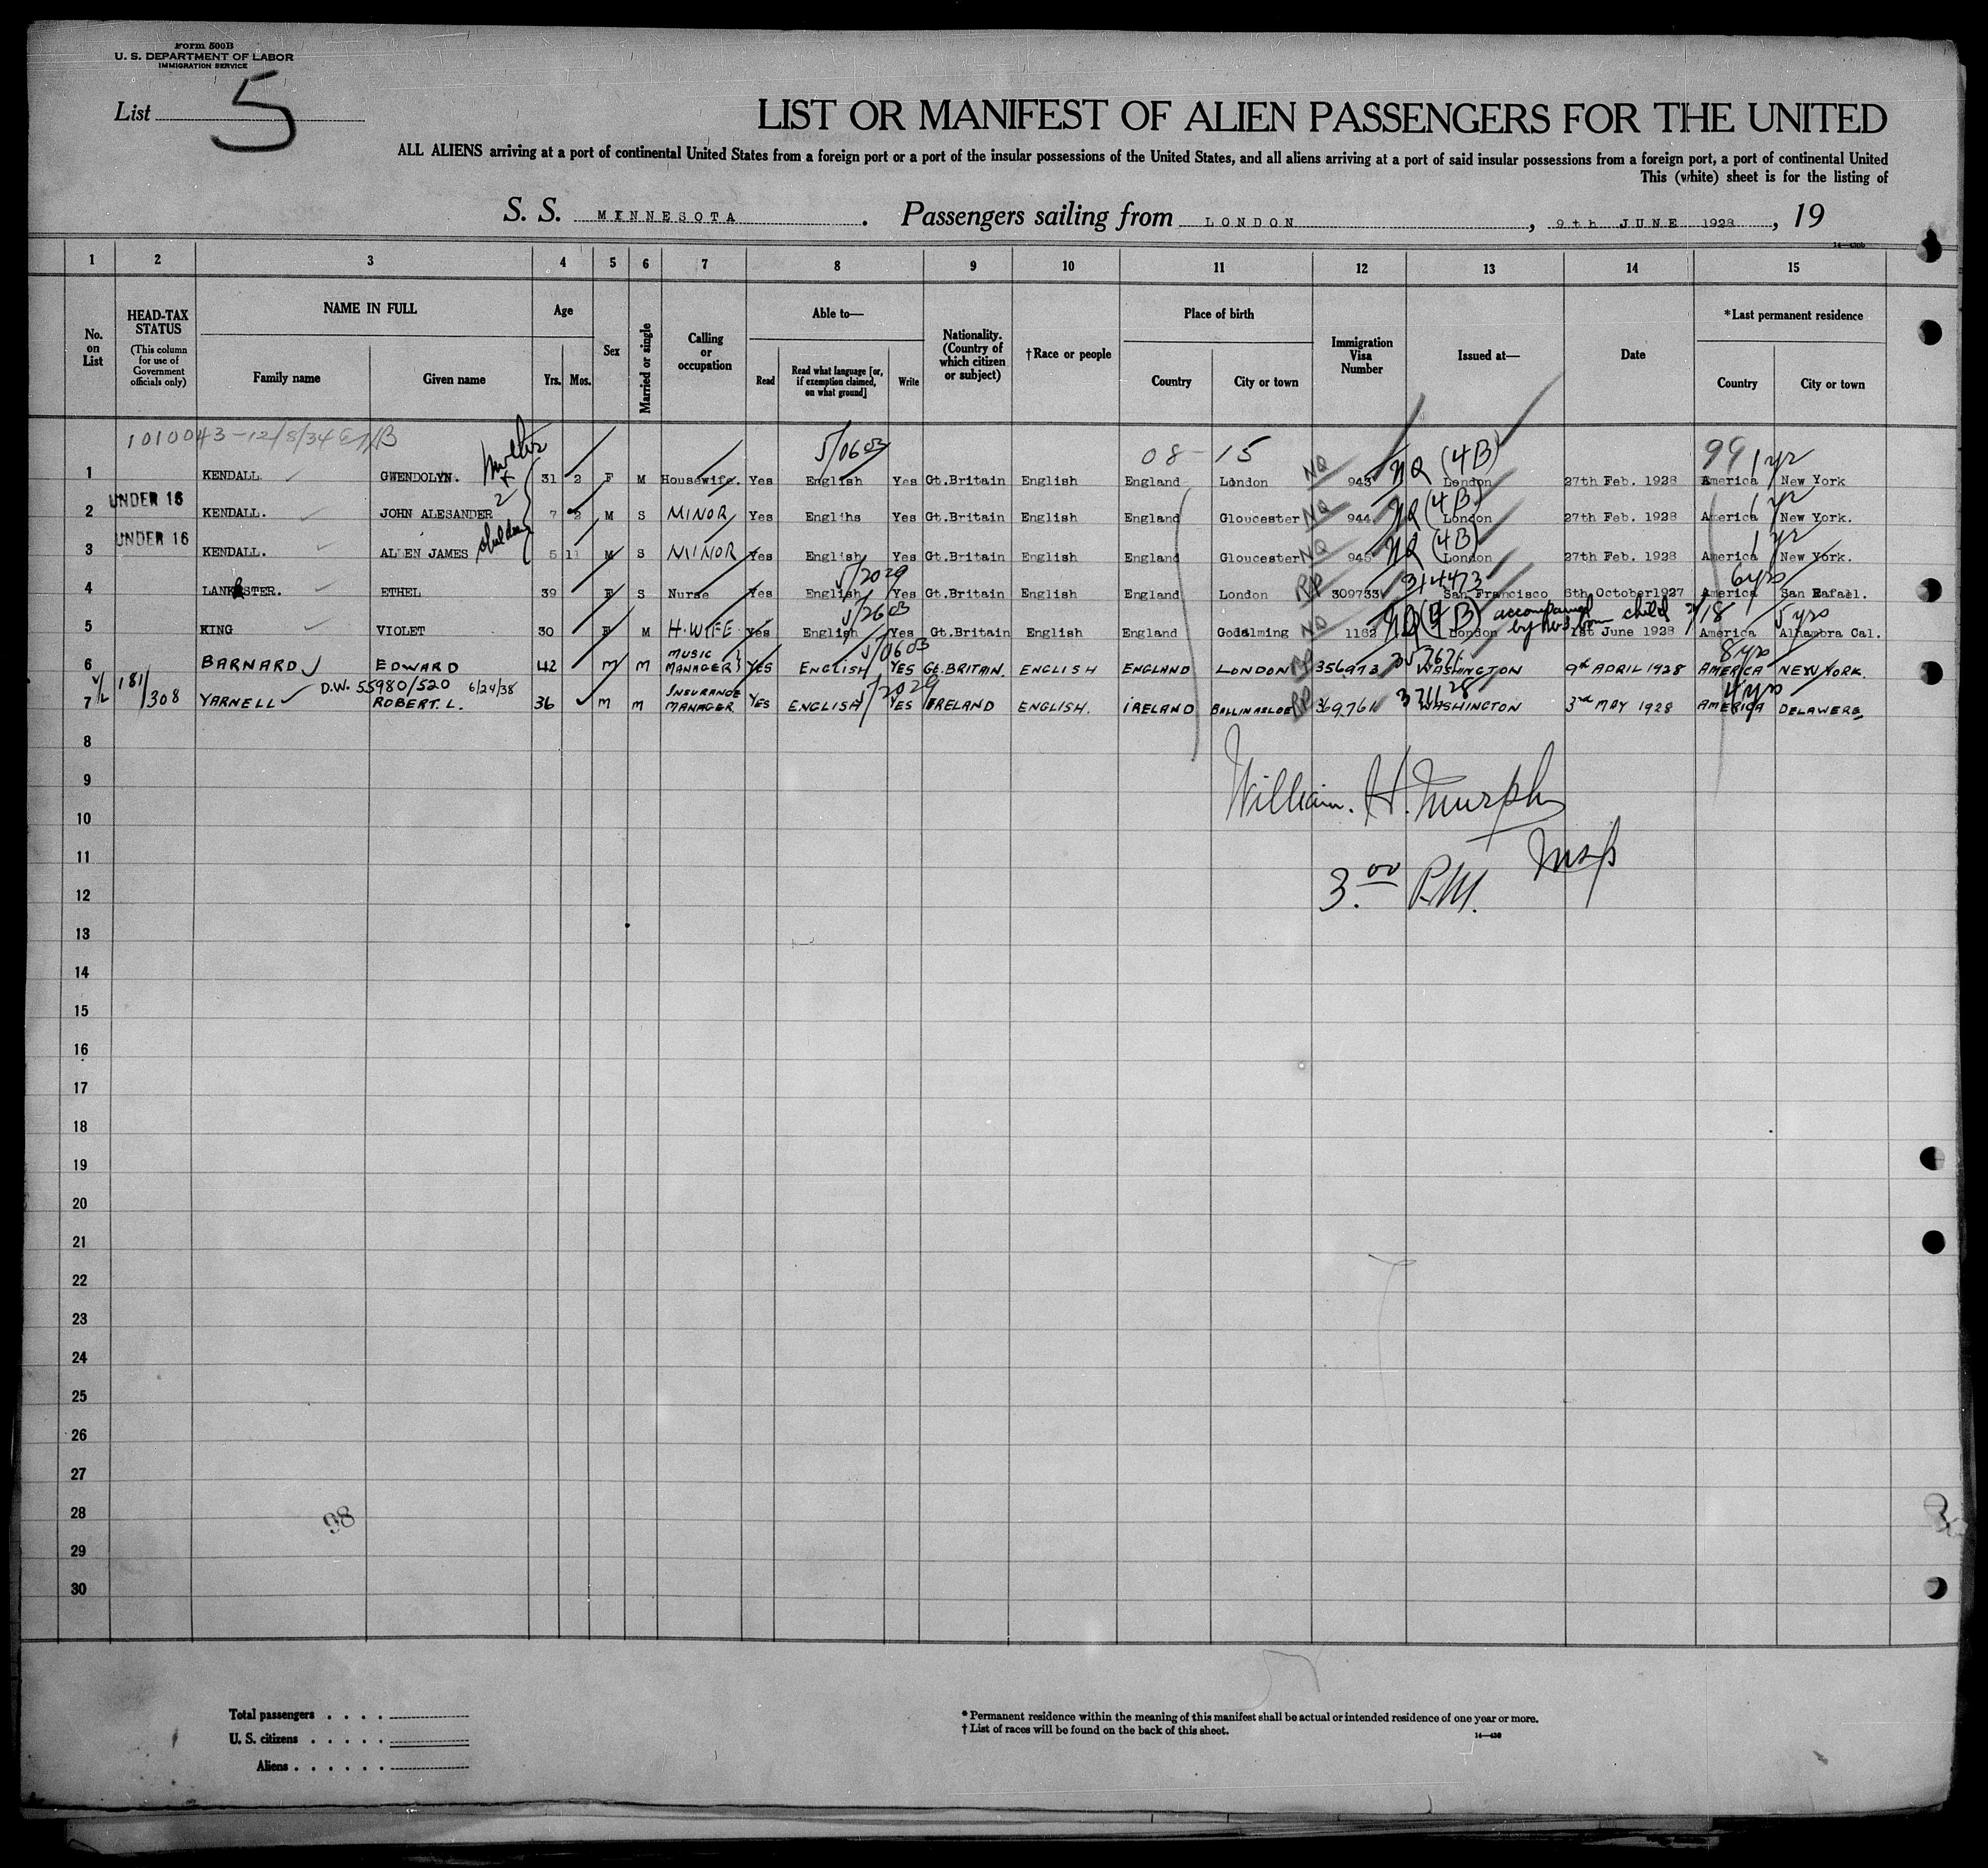 Form 500B
U. S. DEPARTMENT OF LABOR
IMMIGRATION SERVICE
List 5
LIST OR MANIFEST OF ALIEN PASSENGERS FOR THE UNITED
ALL ALIENS arriving at a port of continental United States from a foreign port or a port of the insular possessions of the United States, and all aliens arriving at a port of said insular possessions from a foreign port, a port of continental United
This (white) sheet is for the listing of
S. S. MINNESOTA. Passengers sailing from LONDON, 9th JUNE 1928, 19
1 2 3 4 5 6 7 8 9 10 11 12 13 14 15
No. on List
HEAD-TAX STATUS (This column for use of Government officials only)
NAME IN FULL Family name Given name
Age Yrs. Mos.
Sex
Married or single
Calling or occupation
Able to— Read Read what language [or, if exemption claimed, on what ground] Write
Nationality. (Country of which citizen or subject)
†Race or people
Place of birth Country City or town
Immigration Visa Number
Issued at—
Date
*Last permanent residence Country City or town
1010043-12/8/34 5/0603 08-15 NQ (4B) 99 1 yr
1 KENDALL GWENDOLYN. mother + 2 children 31 2 F M Housewife. Yes English Yes Gt.Britain English England London NQ 943 London 27th Feb. 1928 America New York
UNDER 16 NQ (4B) 1 yr
2 KENDALL. JOHN ALESANDER 7 2 M S MINOR Yes Englihs Yes Gt.Britain English England Gloucester NQ 944 London 27th Feb. 1928 America New York.
UNDER 16 NQ (4B) 1 yr
3 KENDALL. ALLEN JAMES 5 11 M S MINOR Yes English Yes Gt.Britain English England Gloucester NQ 945 London 27th Feb. 1928 America New York.
5/2029 314473 6 yrs
4 LANKESTER. ETHEL 39 F S Nurse Yes English Yes Gt.Britain English England London RP 309733 San Francisco 6th October1927 America San Rafael.
5/2603 NQ (4B) accompanied by child 5 yrs
5 KING VIOLET 30 F M H.WIFE Yes English Yes Gt.Britain English England Godalming NQ 1162 London 1st June 1928 America Alhambra Cal.
5/0603 8 yrs
6 BARNARD EDWARD 42 M M MUSIC MANAGER YES ENGLISH YES Gt.BRITAIN. ENGLISH ENGLAND LONDON RP 356973 WASHINGTON 9th APRIL 1928 AMERICA NEW YORK.
181/308 D.W. 55980/520 6/24/38 5/2029 371128 4 yrs
7 YARNELL ROBERT. L. 36 M M INSURANCE MANAGER YES ENGLISH YES IRELAND ENGLISH. IRELAND BALLINASLOE RP 369761 WASHINGTON 3rd MAY 1928 AMERICA DELAWERE
8
9 William. H. Murphy
10
11 Insp
12 3.00 P.M.
13
14
15
16
17
18
19
20
21
22
23
24
25
26
27
28 98
29
30
Total passengers
U. S. citizens
Aliens
* Permanent residence within the meaning of this manifest shall be actual or intended residence of one year or more.
† List of races will be found on the back of this sheet.